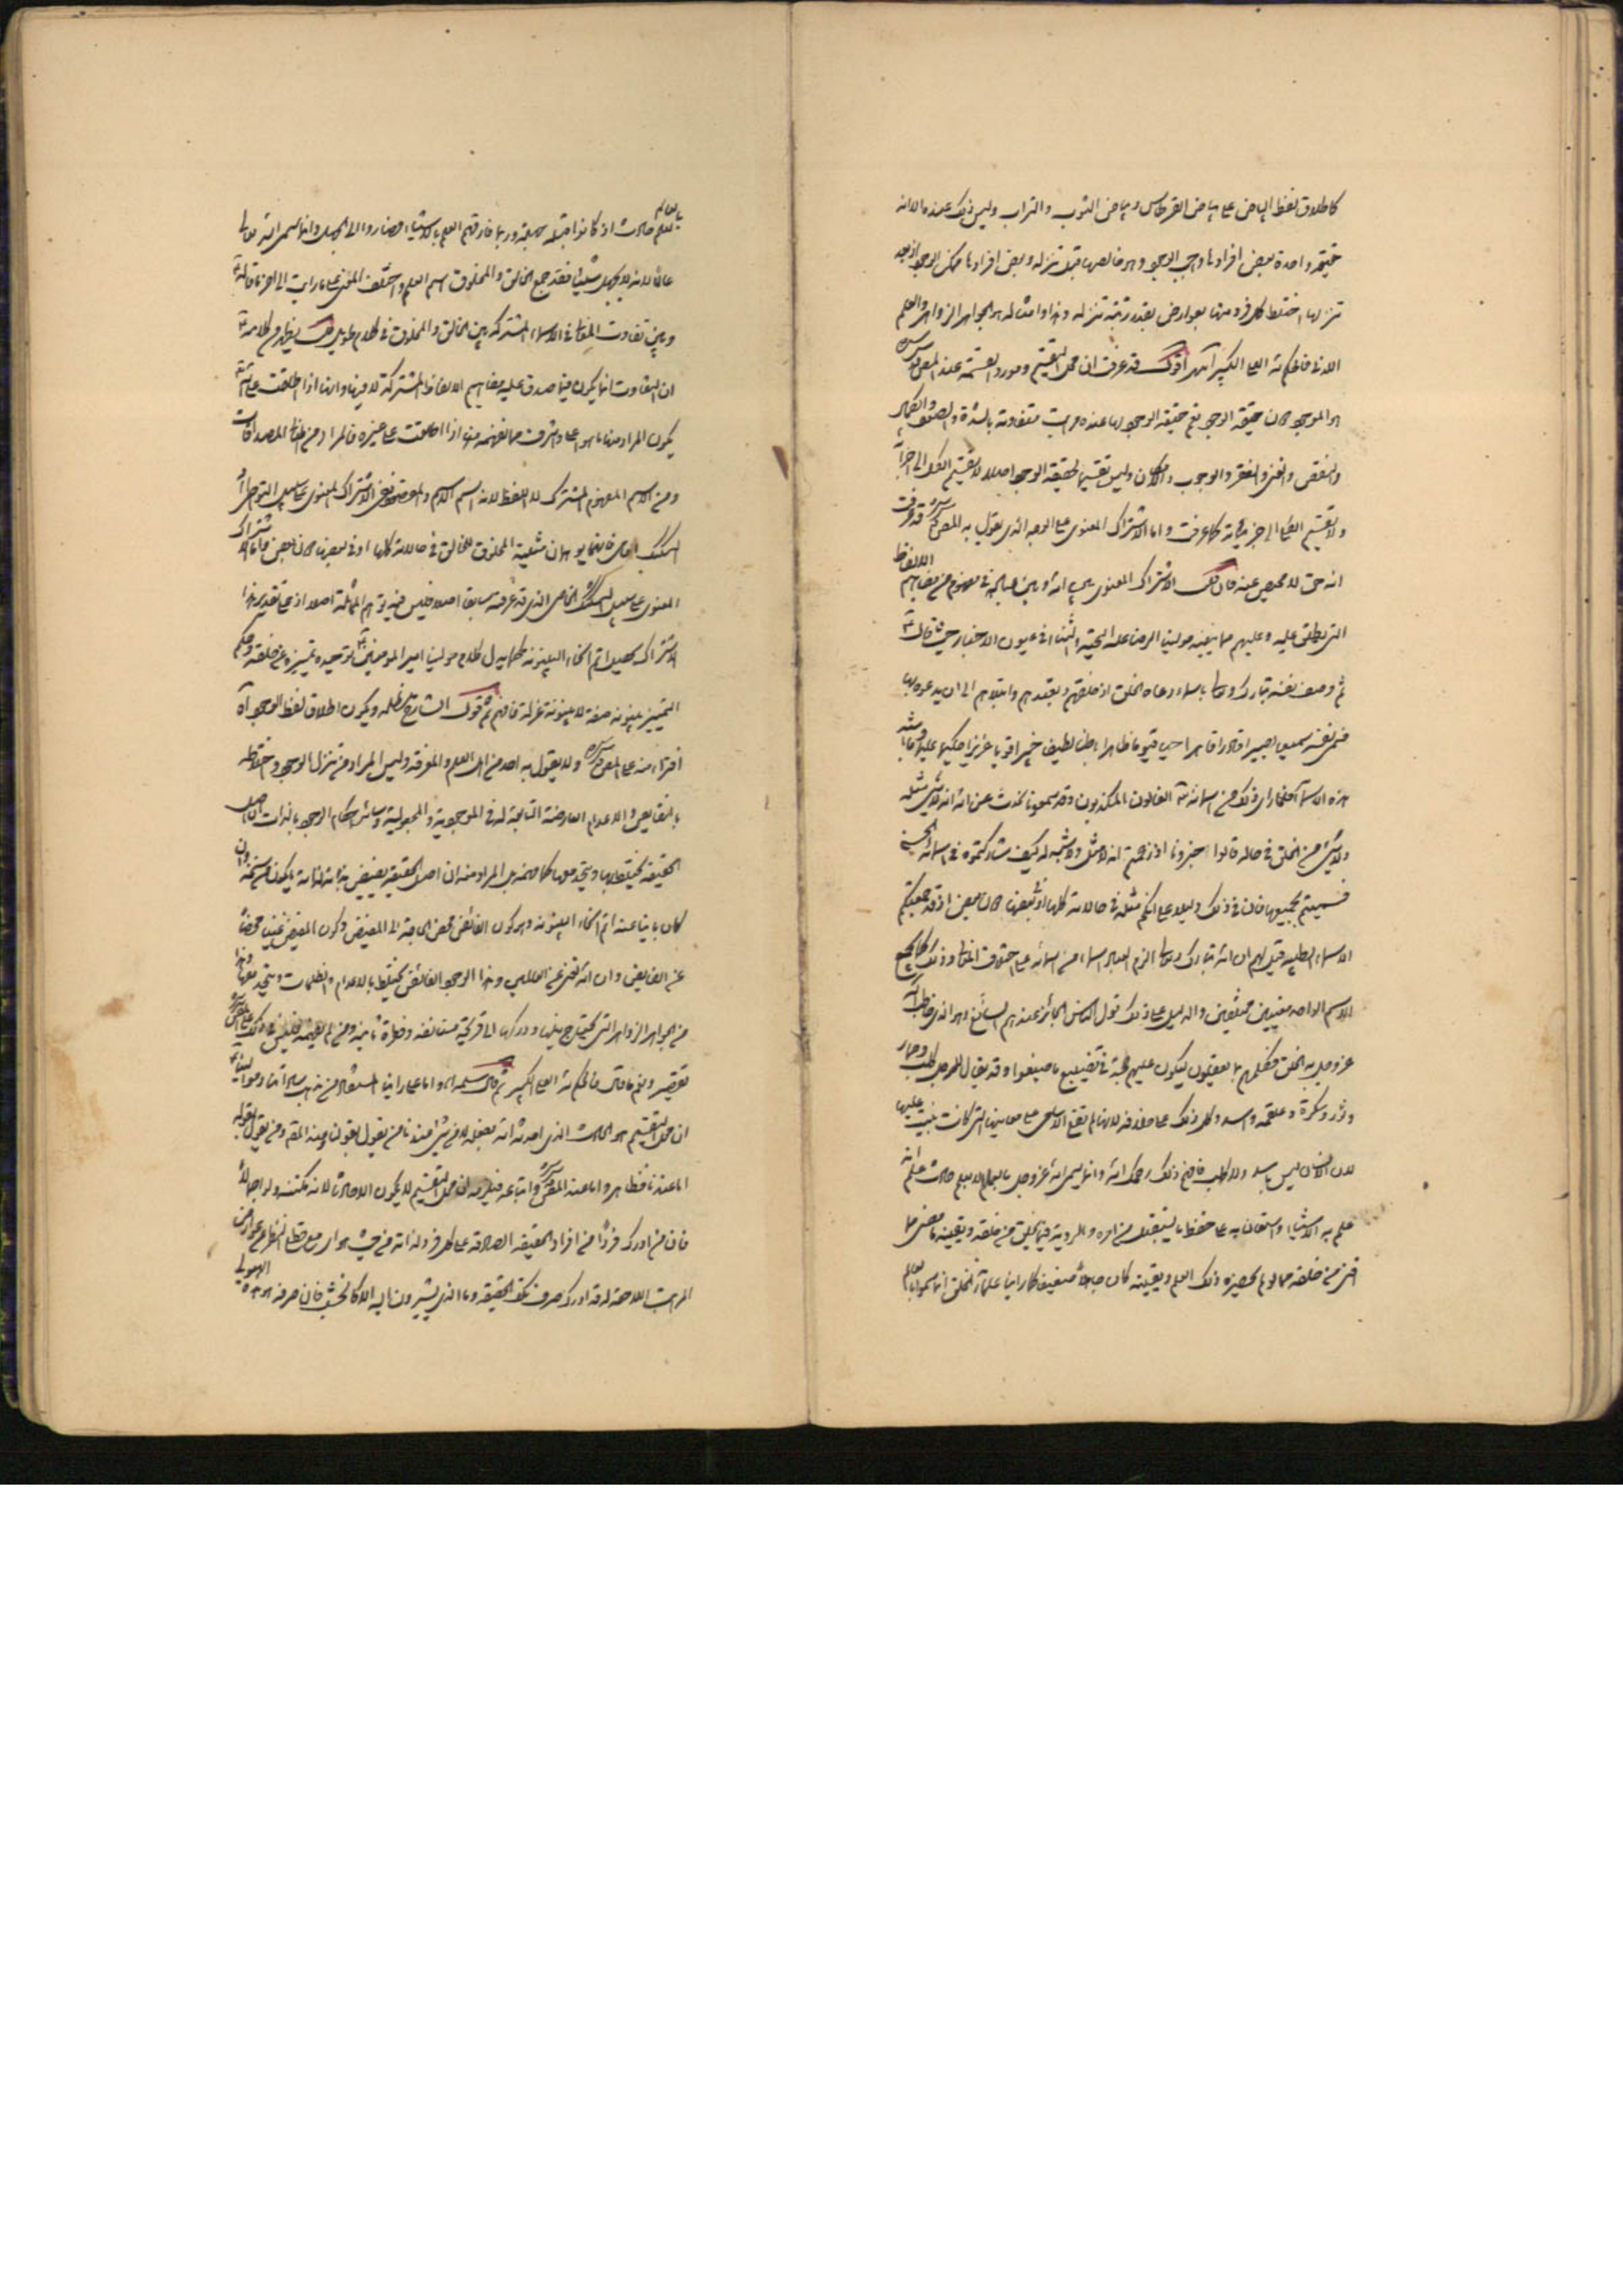 كاطلاق لفظ البياض على بياض القرطاس وبياض الثوب والتراب وليس ذلك عنده الا انه
حقيقة واحدة بعض افرادها واجب الوجود وهو خالصها قبل تنزله وبعض افرادها ممكن الوجود اذ بعد
تنزلها اختلط كل فرد منها بعوارض بقدر رتبة تنزله وهذا وامثاله هو الجواهر الزواهر والعلم
اللدني فالحكم لله العلي الكبير انتهى اقول قد عرفت ان محل التقسيم ومورد القسمة عند المص قدس سره
هو الموجود لان حقيقة الوجود مع حقيقة الوجود لها عنده مراتب متفاوتة بالشدة والضعف والكمال
والنقص والغنى والفقر والوجوب والامكان وليس تقسيما لحقيقة الوجود اصلا لا تقسيم الكل الى اجزائه
ولا تقسيم الكلي الى جزئياته كما عرفت واما الاشتراك المعنوي على الوجه الذي يقول به المص قدس سره قد عرفت
انه حق لا محيص عنه فان قلت الاشتراك المعنوي بين الله وبين عباده في مفهوم من مفاهيم الالفاظ
التي يطلق عليه وعليهم مما ينفيه مولينا الرضا عليه التحية والثناء في عيون الاخبار حيث قال ع
ثم وصف نفسه تبارك وتعالى باسماء دعا الخلق اذ خلقهم وتعبدهم وابتلاهم الى ان يدعوه بها
فسمى نفسه سميعا بصيرا قادرا قاهرا حيا قيوما ظاهرا باطنا لطيفا خبيرا قويا عزيزا حكيما عليما وما اشبه
هذه الاسماء فلما رأى ذلك من اسمائه الغالون المكذبون وقد سمعونا نحدث عن الله انه لا شيء مثله
ولا شيء من الخلق في حاله قالوا اخبرونا اذ زعمتم انه لا مثل ولا شبه له كيف شاركتموه في اسمائه الحسنى
فتسميتم بجميعها فان في ذلك دليلا على انكم مثله في حالاته كلها او في بعضها دون بعض اذ قد جمعتكم
الاسماء الطيبة قيل لهم ان الله تبارك وتعالى الزم العباد اسماء من اسمائه على اختلاف المعاني وذلك كما يجمع
الاسم الواحد معنيين مختلفين والدليل على ذلك قول الناس الجائز عندهم السائغ وهو الذي خاطب الله
عز وجل به الخلق فكلمهم بما يعقلون ليكون عليهم حجة في تضييع ما ضيعوا وقد يقال للرجل كلب وحمار
وثور وسكرة وعلقمة واسد وكل ذلك على خلافه لانه لم تقع الاسامي على معانيها التي كانت بنيت عليها
لان الانسان ليس باسد ولا كلب فافهم ذلك رحمك الله وانما يسمى الله عز وجل بالعالم لا بعلم حادث علم الله
علم به الاشياء واستعان به على حفظ ما يستقبل من امره والروية فيما يخلق من خلقه وتفنيه ما مضى مما
افنى من خلقه مما لو لم يحضره ذلك العلم ويعينه كان جاهلا ضعيفا كما رأينا علماء الخلق انما سموا بالعالم
بالعلم حادث اذ كانوا قبله جهلة وربما فارقهم العلم بالاشياء فصاروا الى الجهل وانما سمى الله تعالى
عالما لانه لا يجهل شيئا فقد جمع الخالق والمخلوق اسم العلم واختلف المعنى على ما رأيت الى اخر ما قاله ع
وبين تفاوت المعاني في الاسماء المشتركة بين الخالق والمخلوق في كلام طويل قلت يظهر من كلامه ع
ان التفاوت انما يكون فيما صدق عليه مفاهيم الالفاظ المشتركة لا فيها وانها اذا اطلقت على الله
يكون المراد منها ما هو اعلى واشرف مما يفهم منها اذا اطلقت على غيره فالمراد من المعاني المصداقات
ومن الاسم المفهوم المشترك لا اللفظ لانه اسم الاسم والمقصود نفي الاشتراك المعنوي على سبيل التواطؤ
التشكيك العامي فانهما يوهمان مثلية المخلوق للخالق في حالاته كلها او في بعضها دون بعض واما الاشتراك
المعنوي على سبيل التشكيك الخاصي الذي قد عرفته سابقا اصلا فليس فيه توهم المماثلة اصلا اذ على تقدير هذا
الاشتراك يحصل اتم انحاء البينونة كما يدل كلام مولينا امير المؤمنين ع توحيده تمييزه عن خلقه وحكم
التمييز بينونة صفة لا بينونة عزلة فافهم ثم قول الشارح يظلمه ويكون اطلاق لفظ الوجود آه
افتراء منه على المص قدس سره ولا يقول به احد من اهل العلم والمعرفة وليس المراد من تنزل الوجود واختلاطه
بالنقايص والاعدام العارضة التابعة له في الموجودية والمجعولية وسائر احكام الوجود بالذات اصل
الحقيقة يختلط بها ويتحد معها كما زعمه بل المراد منه ان اصل الحقيقة يفيض بذاته لذاته ما يكون من سنخه وان
كان باينا عنه اتم انحاء البينونة وهو كون الفائض محض الحاجة الى المفيض وكون المفيض غنيا محضا
عن الفايض وان الله لغني عن العالمين وهذا الوجود الفائض يختلط بالاعدام والظلمات ويتحد معها وهذا
من الجواهر الزواهر التي يحتاج نيلها ودركها الى قريحة مستانفة وفطرة ثانية ومن لم يفهمه فليس في ذلك على المص قدس سره
تقصير ونعم ما قال فالحكم لله العلي الكبير ثم قال سلمه الله واما على راينا المستفاد من مذهب ساداتنا وموالينا ع
ان محل التقسيم هو الحادث الذي احدثه الله بفعله لا من شيء فهذا ما من يقول بقول اهل هذا المقام ومن يقول بقوله
اما عندنا فظاهر واما عند المص قدس سره واتباعه فيلزمه ان محل التقسيم لا يكون الا حادثا لانه مكتنه ولو اجمالا
فان من ادرك فردا من افراد الحقيقة الصادقة على كل فرد لذاته من حيث هو اي مع قطع النظر عن عوارض
المراتب اللاحقة له قد ادرك صرف تلك الحقيقة وما الذي يشيرون اليه الا كالخشب فان صرفه هو هذه الهيولى